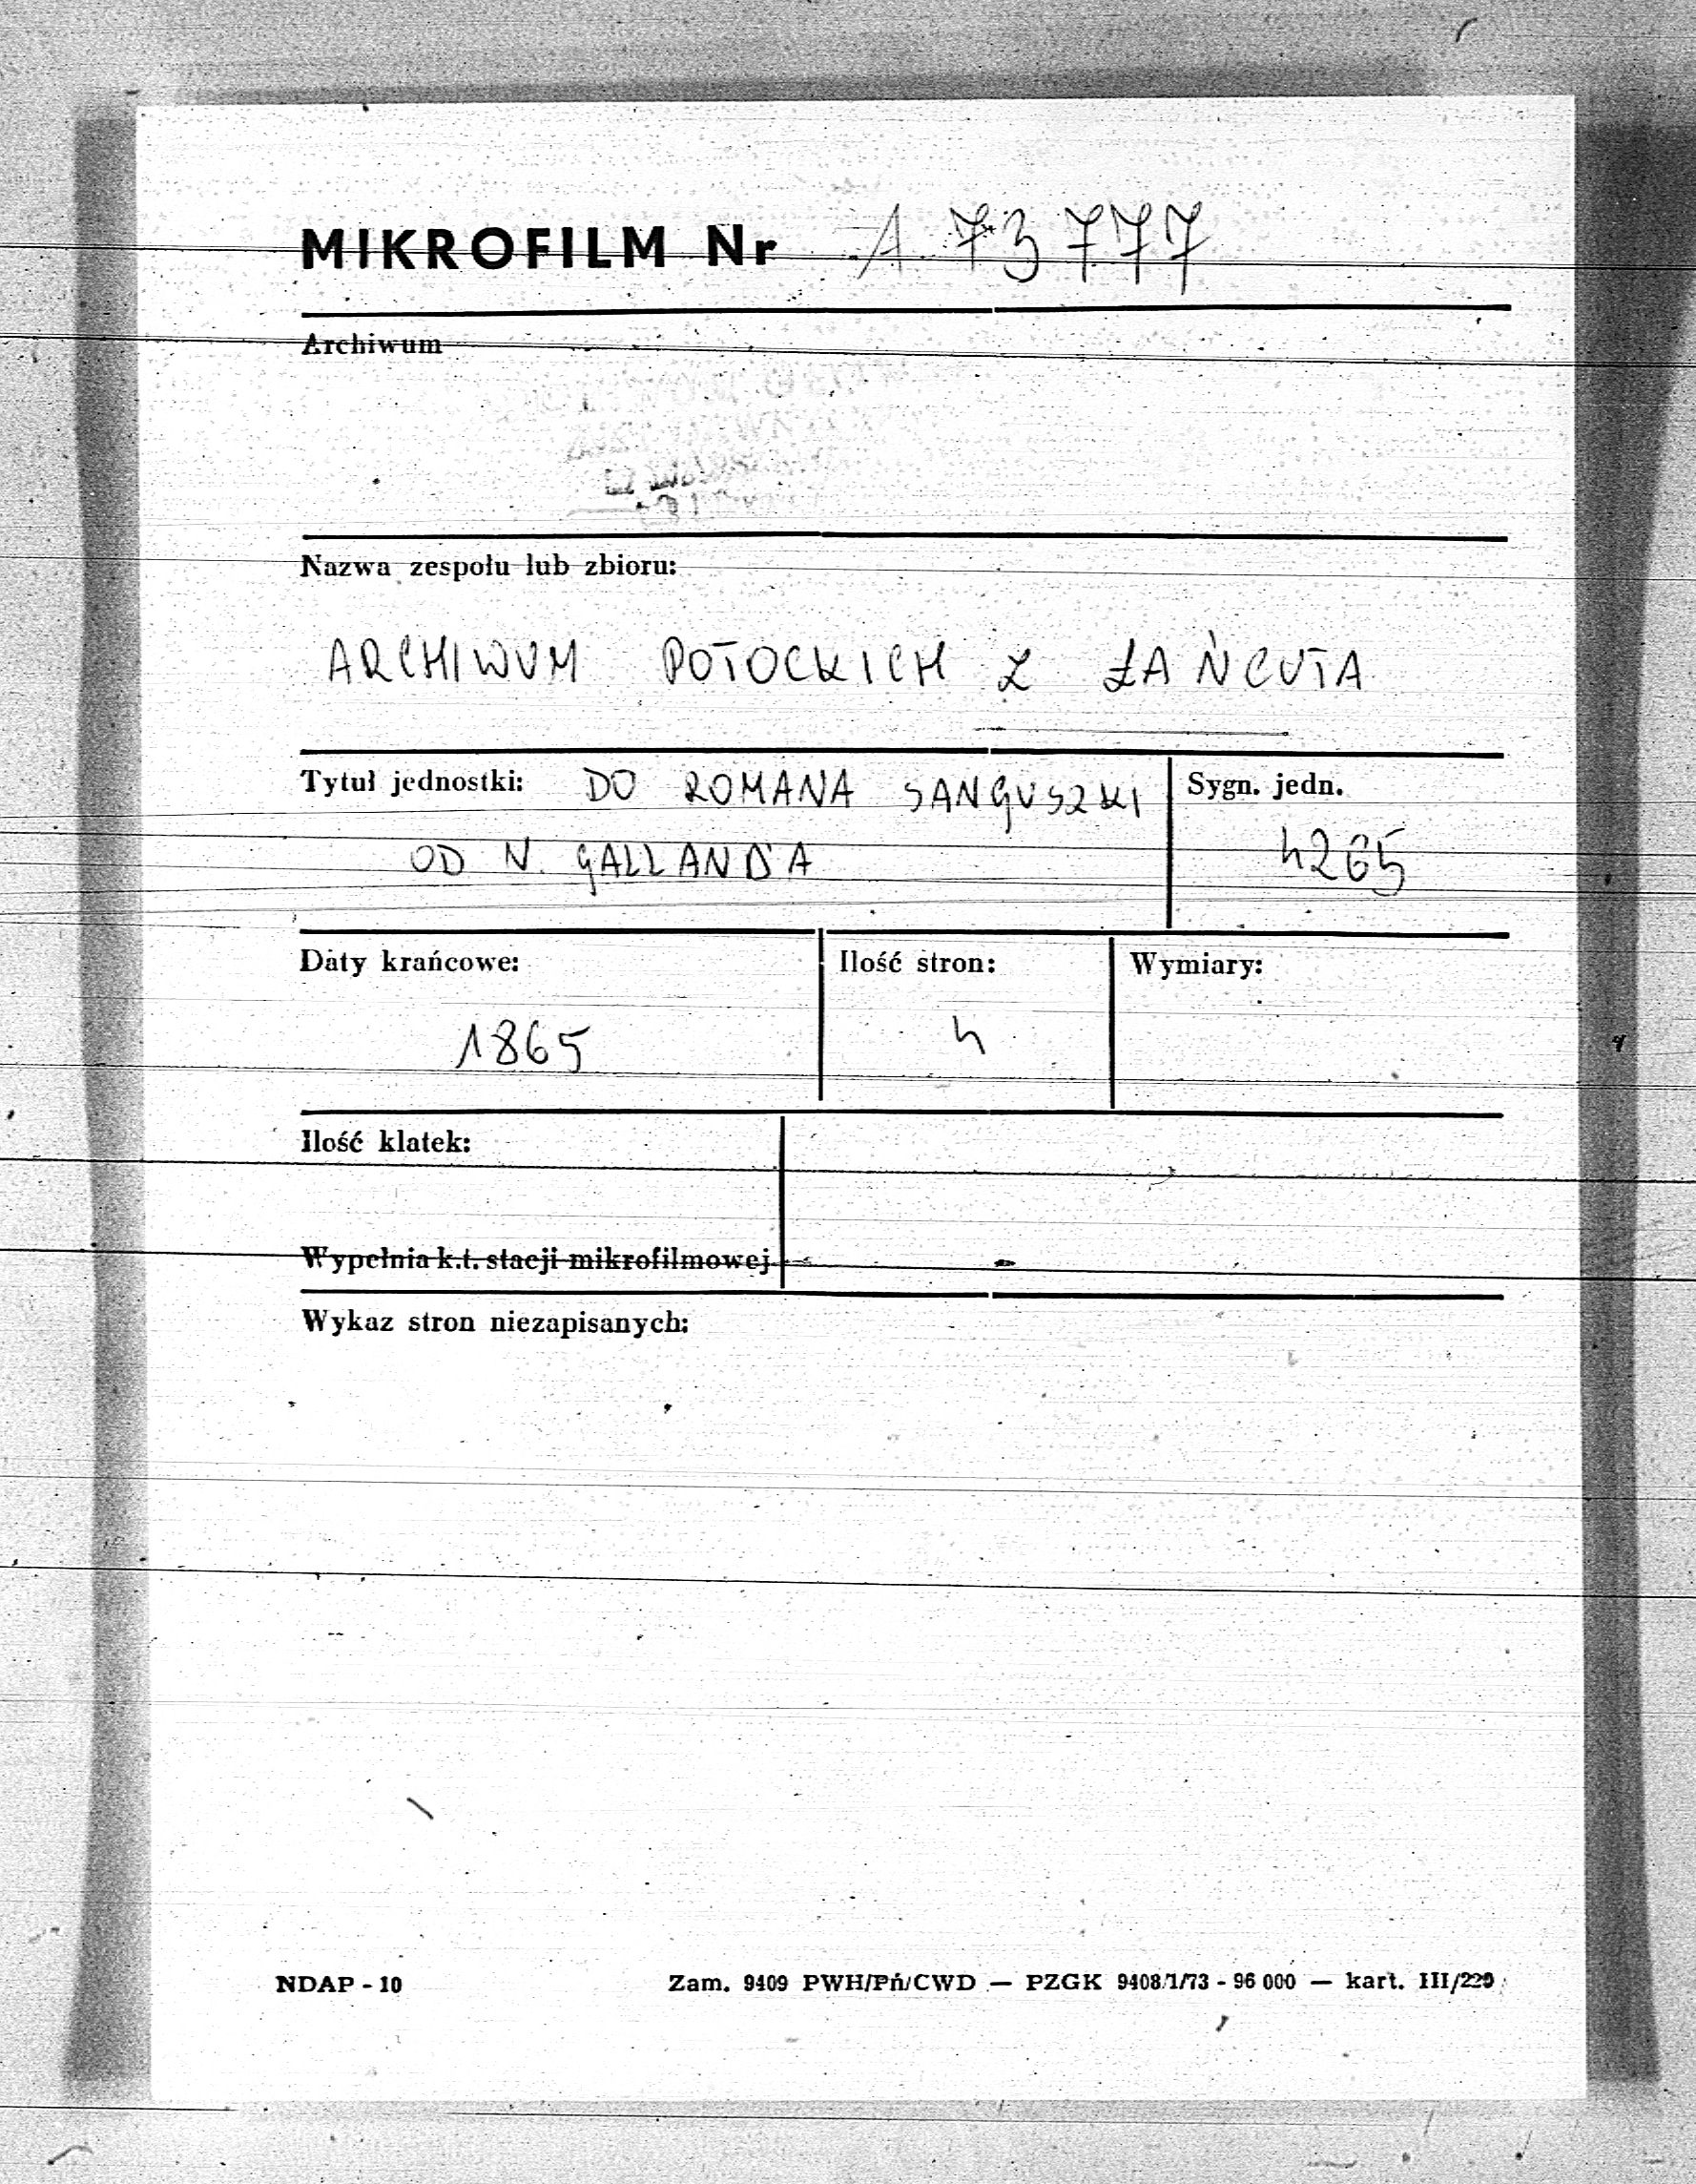 MIKROFILM Nr A 73777
Archiwum
Nazwa zespołu lub zbioru:
ARCHIWUM POTOCKICH Z ŁAŃCUTA
Tytuł jednostki: DO ROMANA SANGUSZKI
OD N. GALLAND'A
Sygn. jedn.
4265
Daty krańcowe:
1865
Ilość stron:
4
Wymiary:
Ilość klatek:
Wypełnia k.t. stacji mikrofilmowej
Wykaz stron niezapisanych:
NDAP - 10
Zam. 9409 PWH/Pń/CWD — PZGK 9408/1/73 - 96 000 — kart. III/220